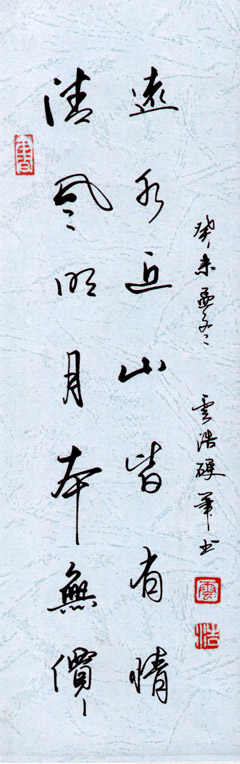 清風明月本無價
遠水近山皆有情
癸未孟冬 雲浩硬筆书
雲
浩